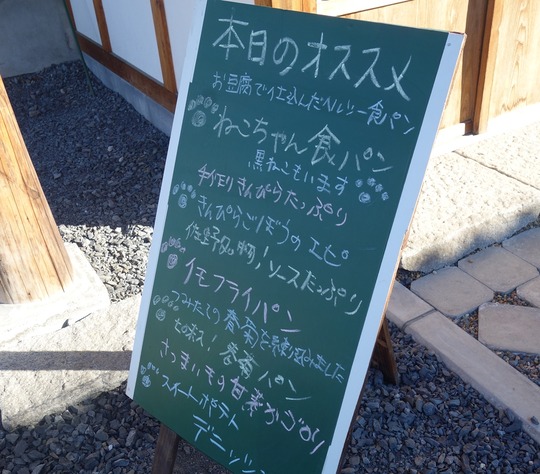 本日のオススメ
お豆腐で仕込んだヘルシー食パン
ねこちゃん食パン
黒ねこもいます
手作りきんぴらたっぷり
きんぴらごぼうのエピ
佐野名物!ソースたっぷり
イモフライパン
つみたての春菊を練り込みました
七の末入!春菊パン
さつまいもの甘煮がゴロリ
スイートポテト
デニッシュ